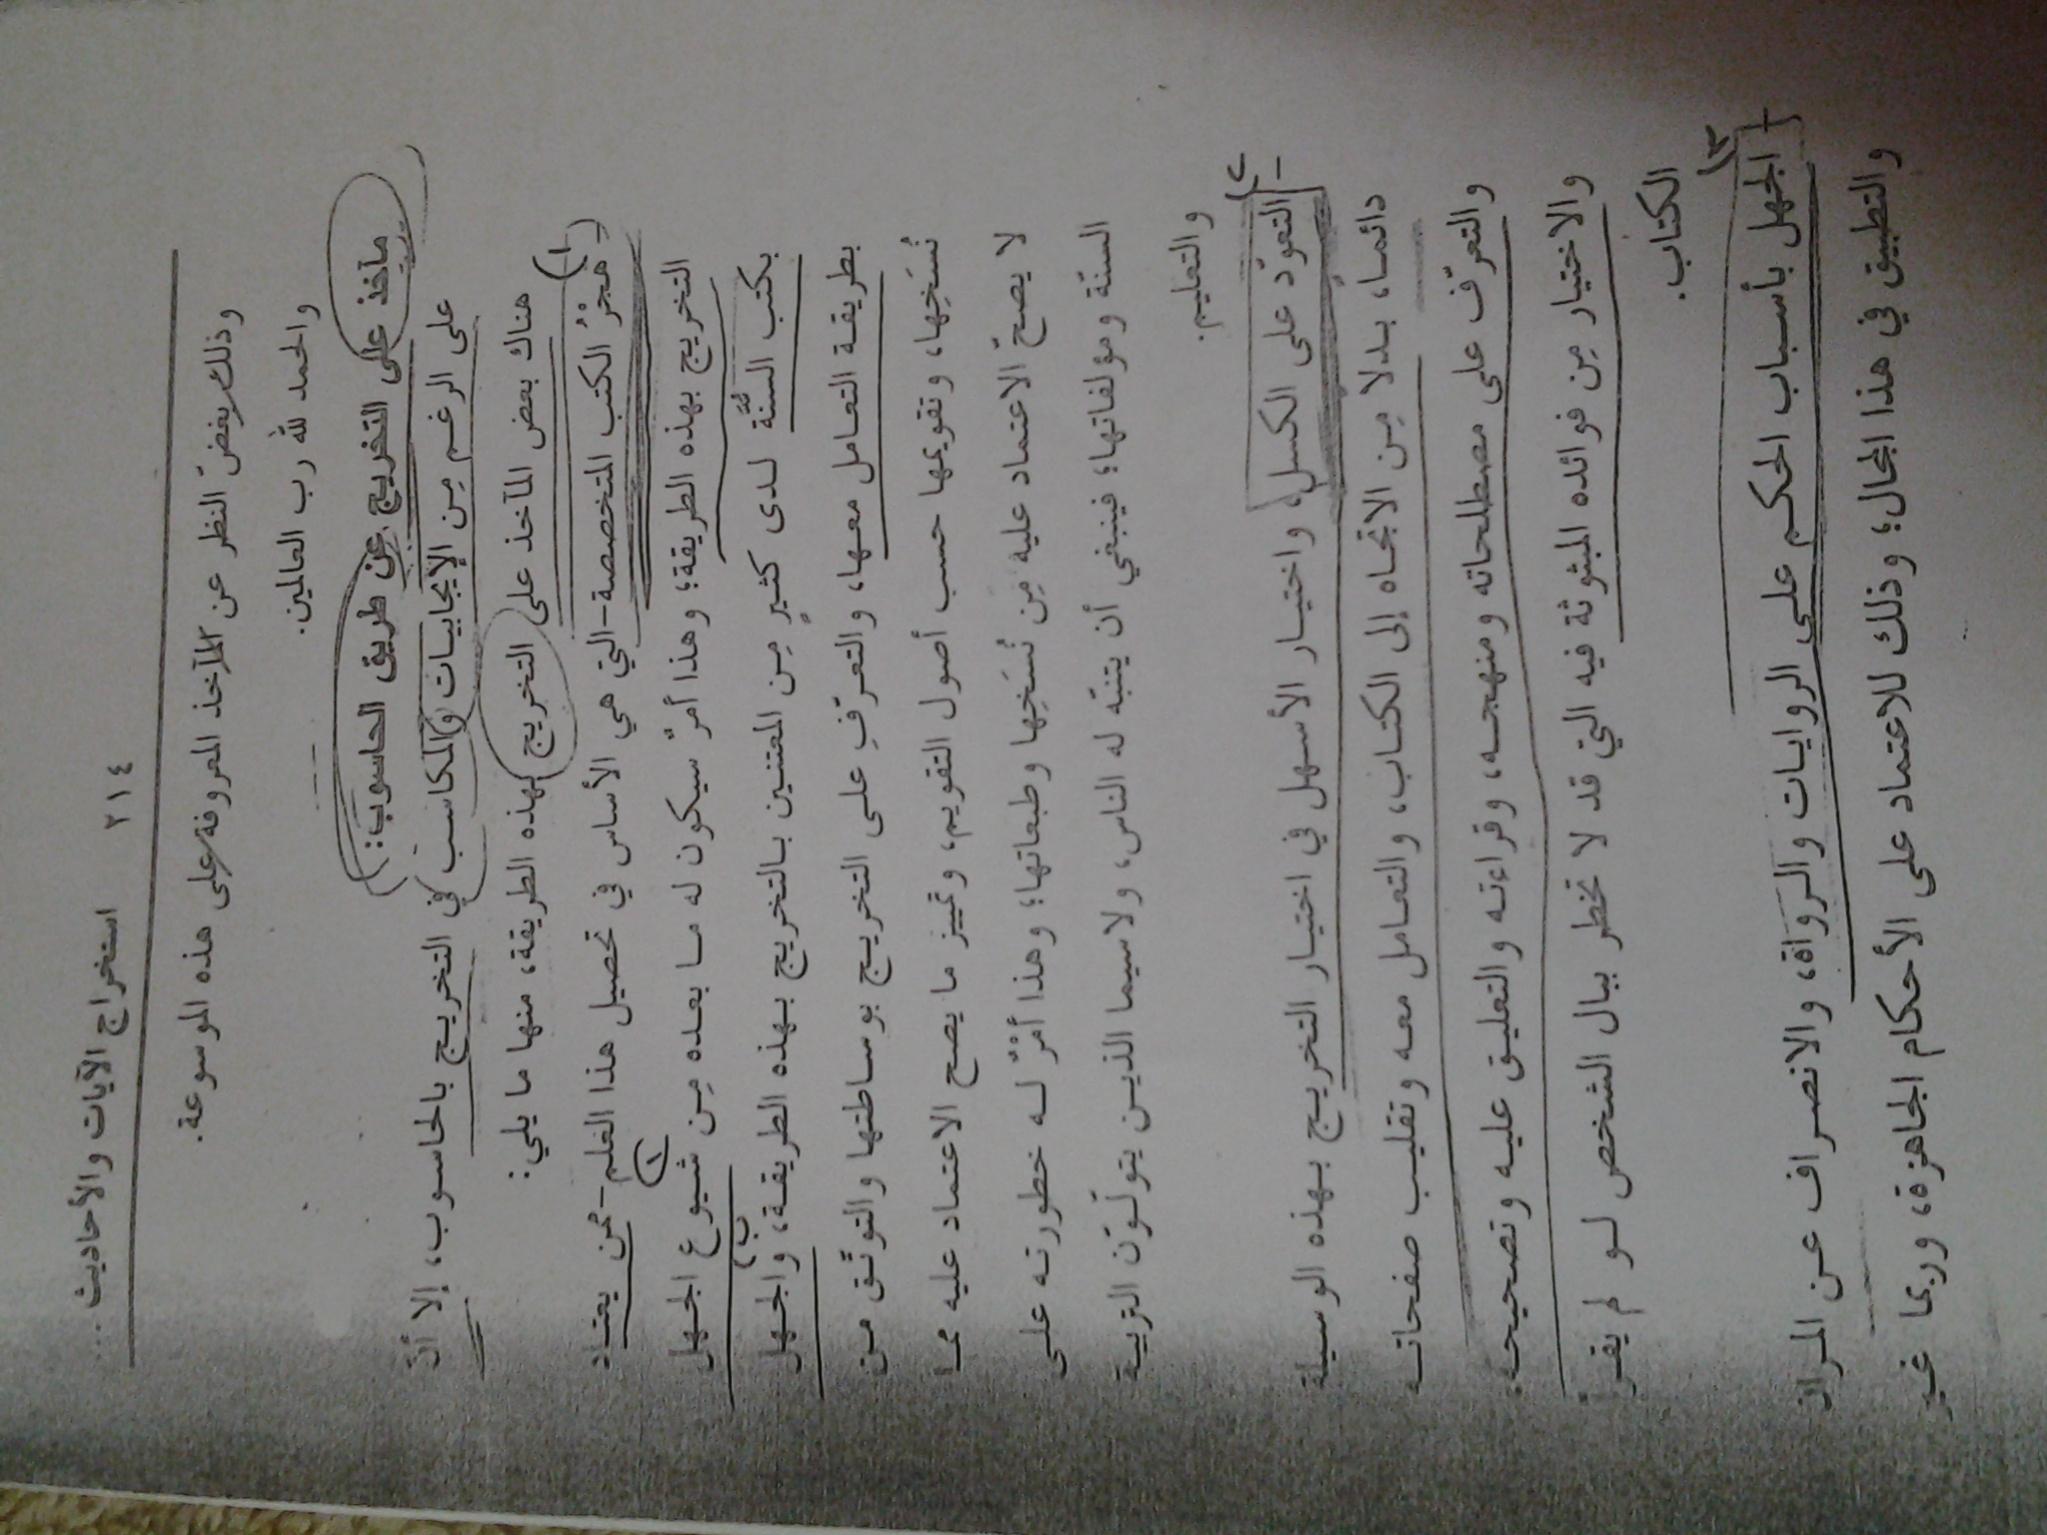 استخراج الآيات والأحاديث ... ٢١٤
وذلك بغضّ النظر عن المآخذ المعروفة على هذه الموسوعة.
والحمد لله رب العالمين.
مآخذ على التخريج عن طريق الحاسوب:
على الرغم مِن الإيجابيات والمكاسب في التخريج بالحاسوب، إلا أنّ
هناك بعض المآخذ على التخريج بهذه الطريقة، منها ما يلي:
١) هجْرُ الكتب المتخصصة -التي هي الأساس في تحصيل هذا العلم- ممن يعتاد
التخريج بهذه الطريقة؛ وهذا أمرٌ سيكون له ما بعده مِن ١) شيوع الجهل
بكتب السُّنَّة لدى كثيرٍ مِن المعتنين بالتخريج بهذه الطريقة، ب) والجهل
بطريقة التعامل معها، والتعرّفِ على التخريج بوساطتها والتوثّق من
نُسَخِها، وتقويمها حسب أصول التقويم، وتمييز ما يصح الاعتماد عليه مما
لا يصحّ الاعتماد عليه مِن نُسَخِها وطبعاتها؛ وهذا أمْرٌ له خطورته على
السنّة ومؤلفاتها؛ فينبغي أن يتنبّه له الناس، ولاسيما الذين يتولّون التربية
والتعليم.
٢) التعوّد على الكسل، واختيار الأسهل في اختيار التخريج بهذه الوسيلة
دائما، بدلا مِن الاتجاه إلى الكتاب، والتعامل معه وتقليب صفحاته
والتعرّف على مصطلحاته ومنهجه، وقراءته والتعليق عليه وتصحيحه،
والاختيار مِن فوائده المبثوثة فيه التي قد لا تخطر ببال الشخص لو لم يقرأ
الكتاب.
٣) الجهل بأسباب الحكم على الروايات والرواة، والانصراف عن المران
والتطبيق في هذا المجال؛ وذلك للاعتماد على الأحكام الجاهزة، وربما غير